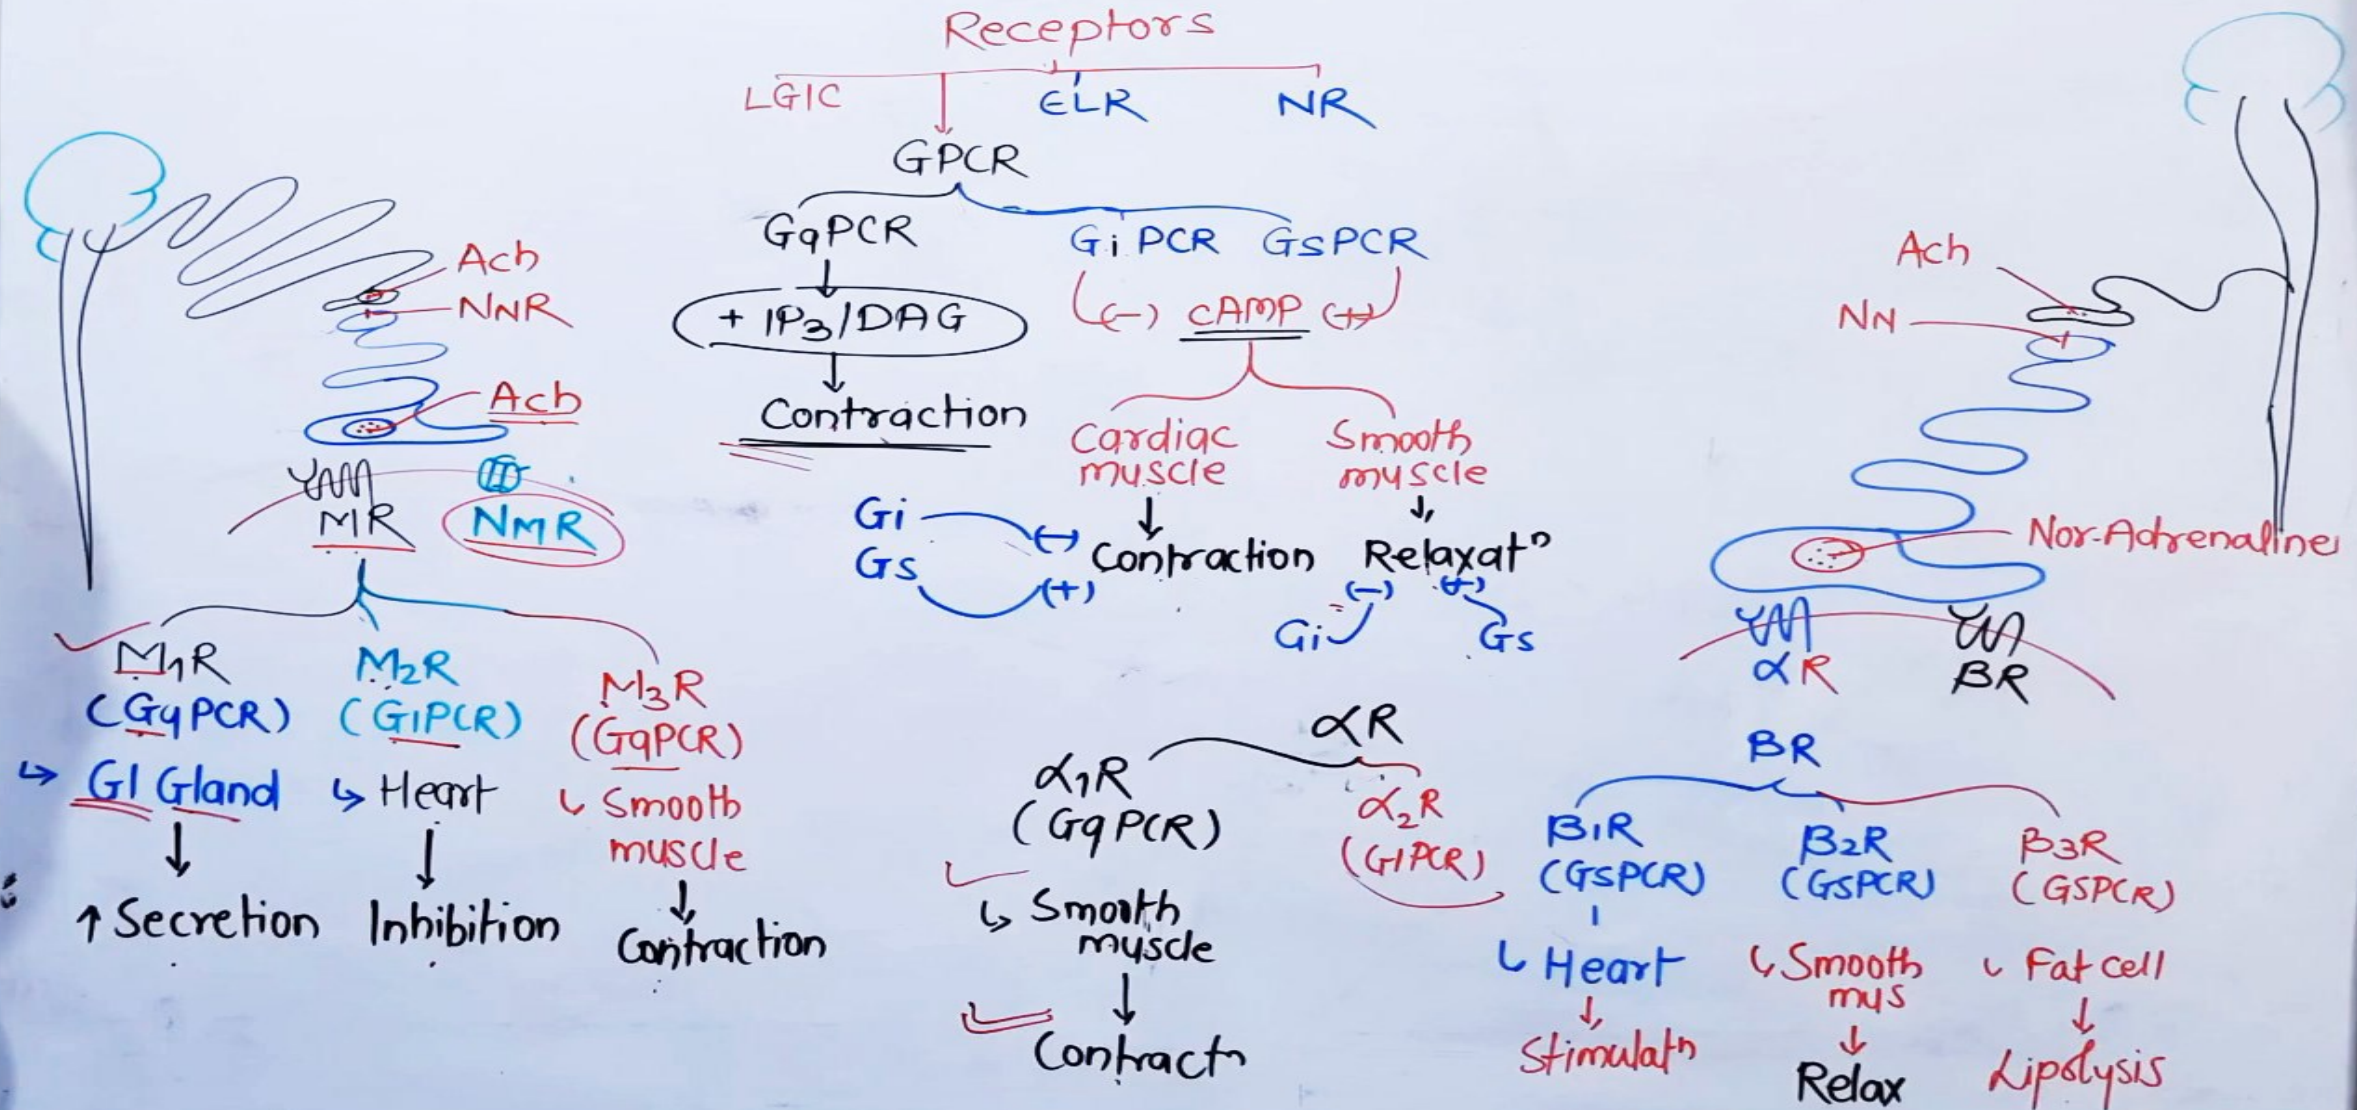 Receptors
LGIC
ELR
NR
GPCR
GqPCR
GiPCR
GsPCR
+ IP3/DAG
(-) cAMP (+)
Contraction
Cardiac
muscle
Smooth
muscle
Gi
Gs
(-)
(+)
Contraction
Relaxatn
(-)
(+)
Gi
Gs
Ach
NNR
Ach
MR
NMR
M1R
(GqPCR)
GI Gland
↑ Secretion
M2R
(GiPCR)
Heart
Inhibition
M3R
(GqPCR)
Smooth
muscle
Contraction
αR
α1R
(GqPCR)
Smooth
muscle
Contractn
α2R
(GiPCR)
Ach
NN
Nor-Adrenaline
αR
βR
βR
β1R
(GsPCR)
Heart
Stimulatn
β2R
(GsPCR)
Smooth
mus
Relax
β3R
(GSPCR)
Fat cell
Lipolysis